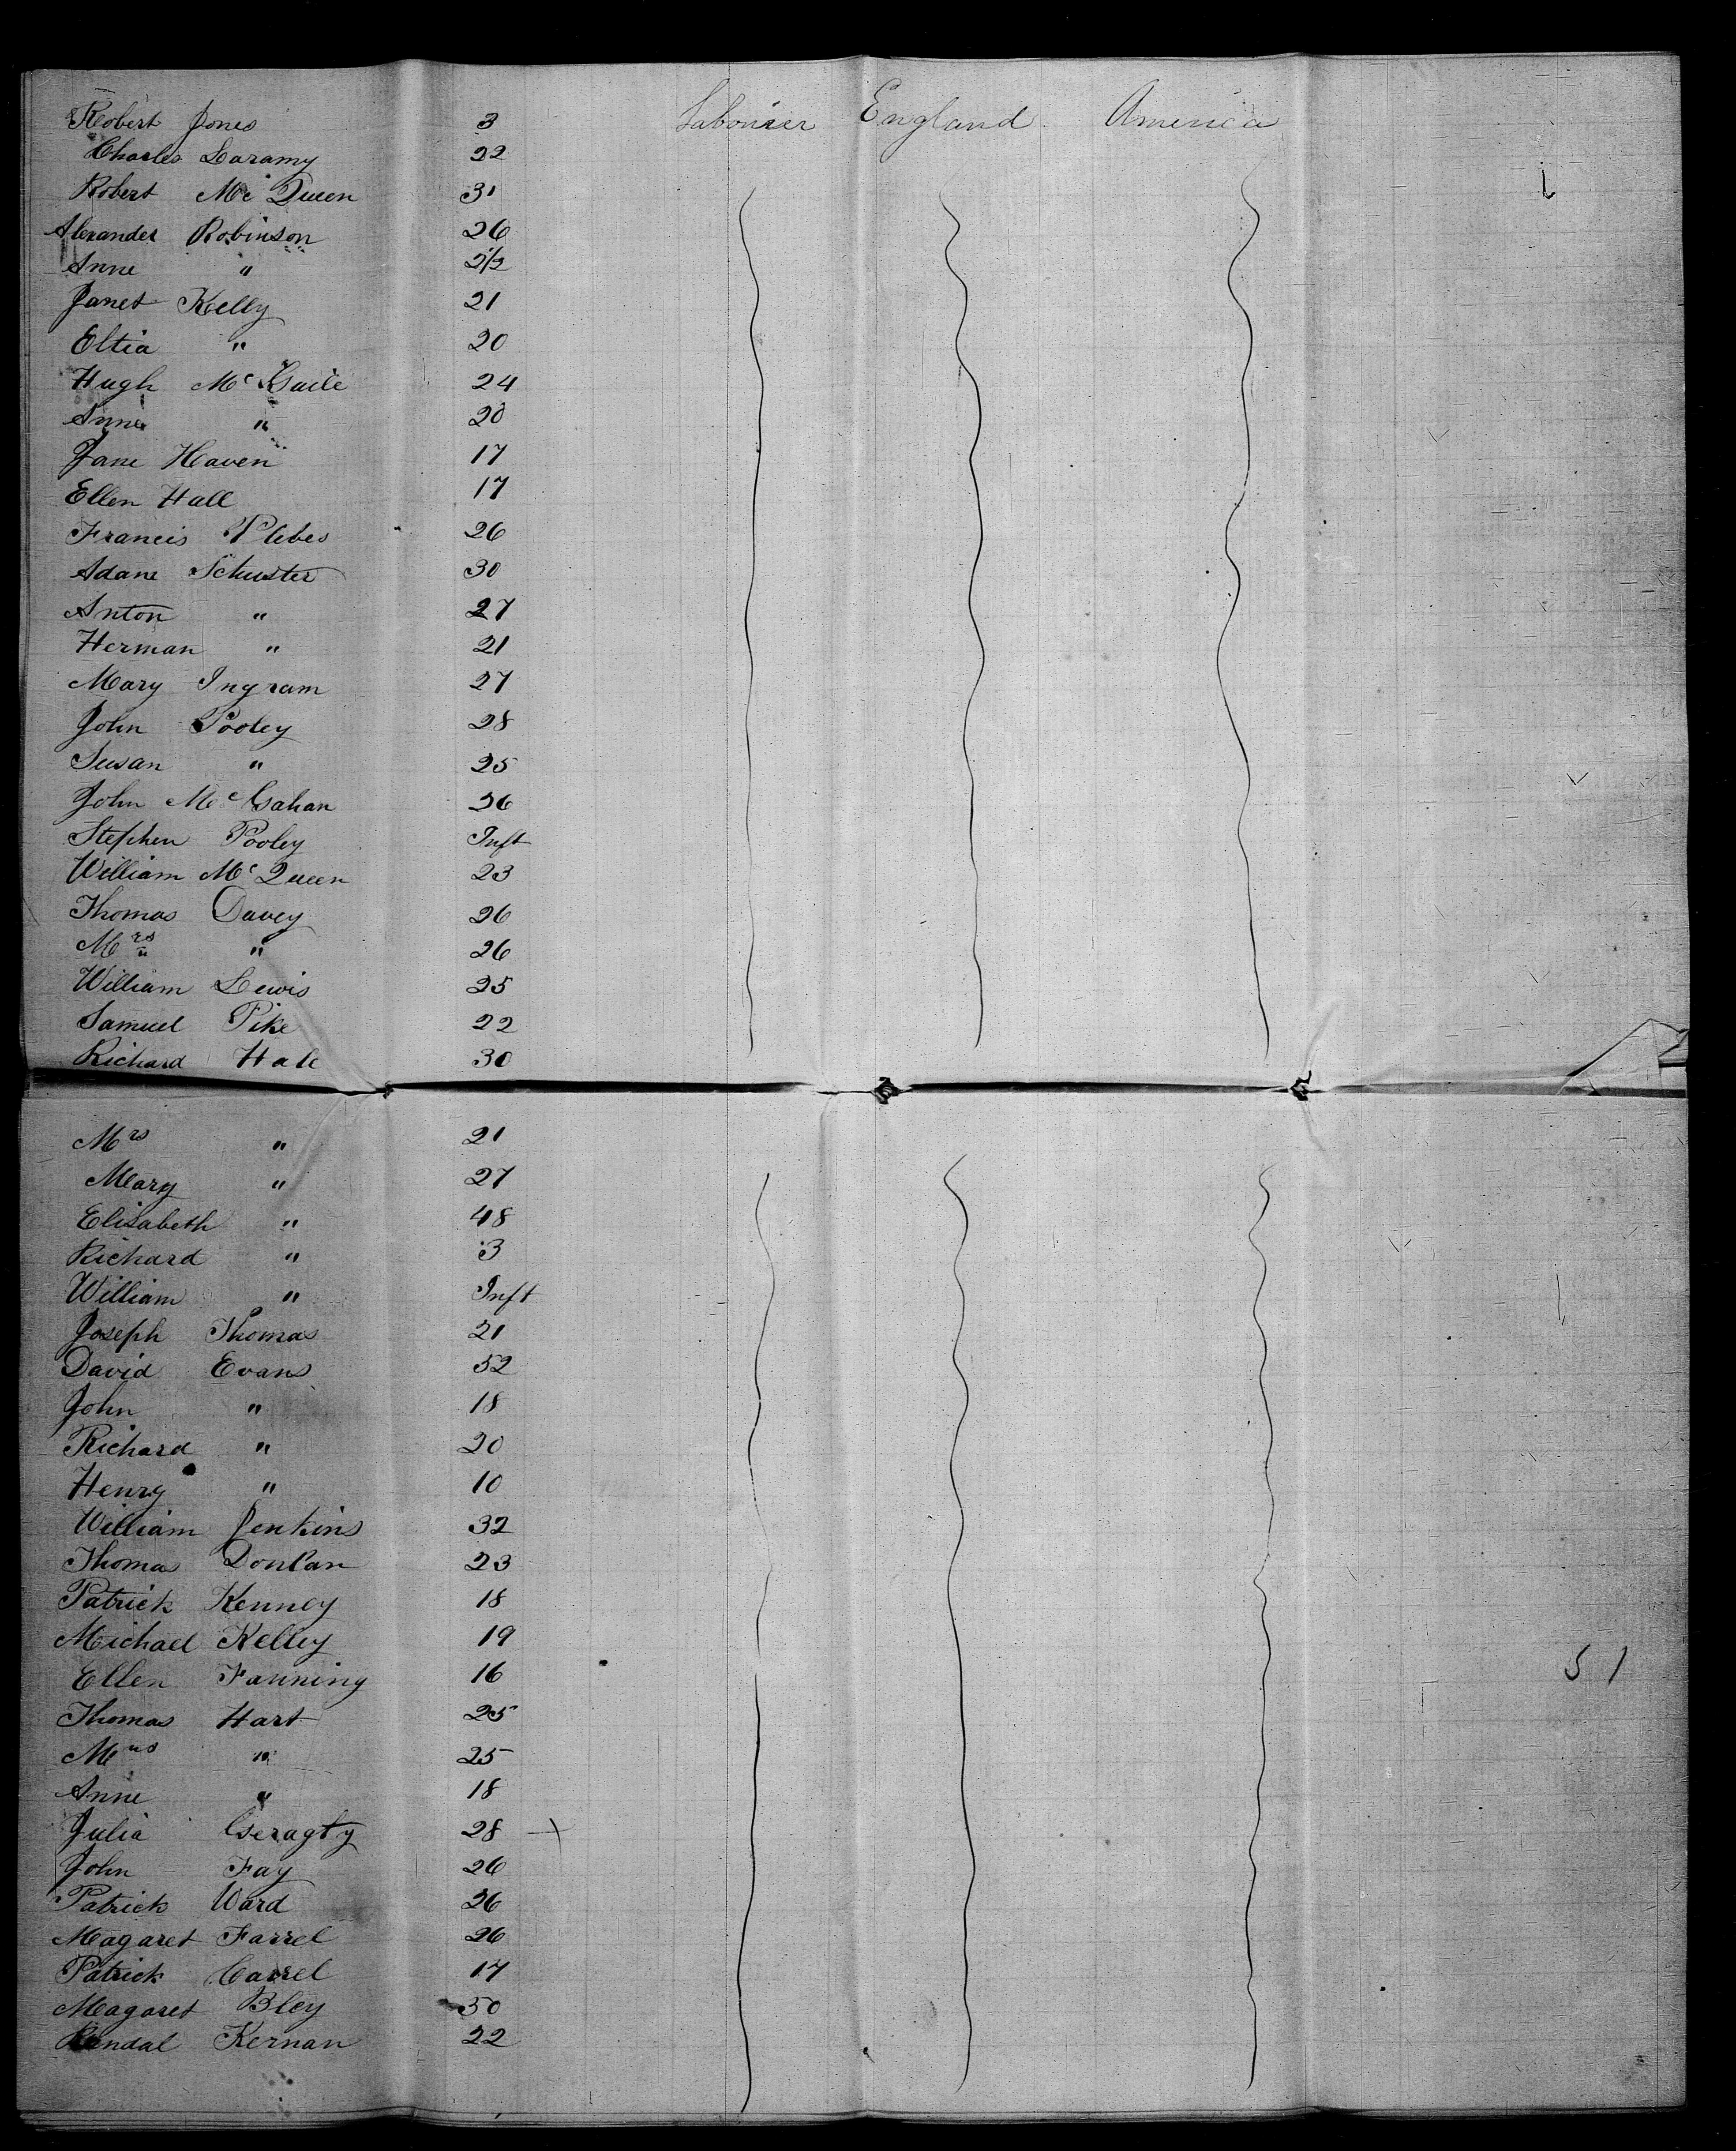 Robert Jones 3 Labourer England America
Charles Laramy 22
Robert Mc Queen 31
Alexander Robinson 26
Anne " 2½
Janet Kelly 21
Eltia " 20
Hugh Mc 24
Anne " 20
Jane Haven 17
Ellen Hall 17
Francis Plebes 26
Adane Schuster 30
Anton " 27
Herman " 21
Mary Ingram 27
John Pooley 28
Susan " 25
John Mc Gahan 26
Stephen Pooley Inft
William Mc Queen 23
Thomas Davey 26
Mrs " 26
William Lewis 25
Samuel Pike 22
Richard Hale 30
Mrs " 21
Mary " 27
Elisabeth " 48
Richard " 3
William " Inft
Joseph Thomas 21
David Evans 52
John " 18
Richard " 20
Henry " 10
William Jenkins 32
Thomas Donlan 23
Patrick Kenney 18
Michael Kelley 19
Ellen Fanning 16 51
Thomas Hart 25
Mrs " 25
Anne " 18
Julia Geragty 28
John Fay 26
Patrick Ward 26
Magaret Farrel 26
Patrick Carrel 17
Magaret Bley 50
Randal Kernan 22